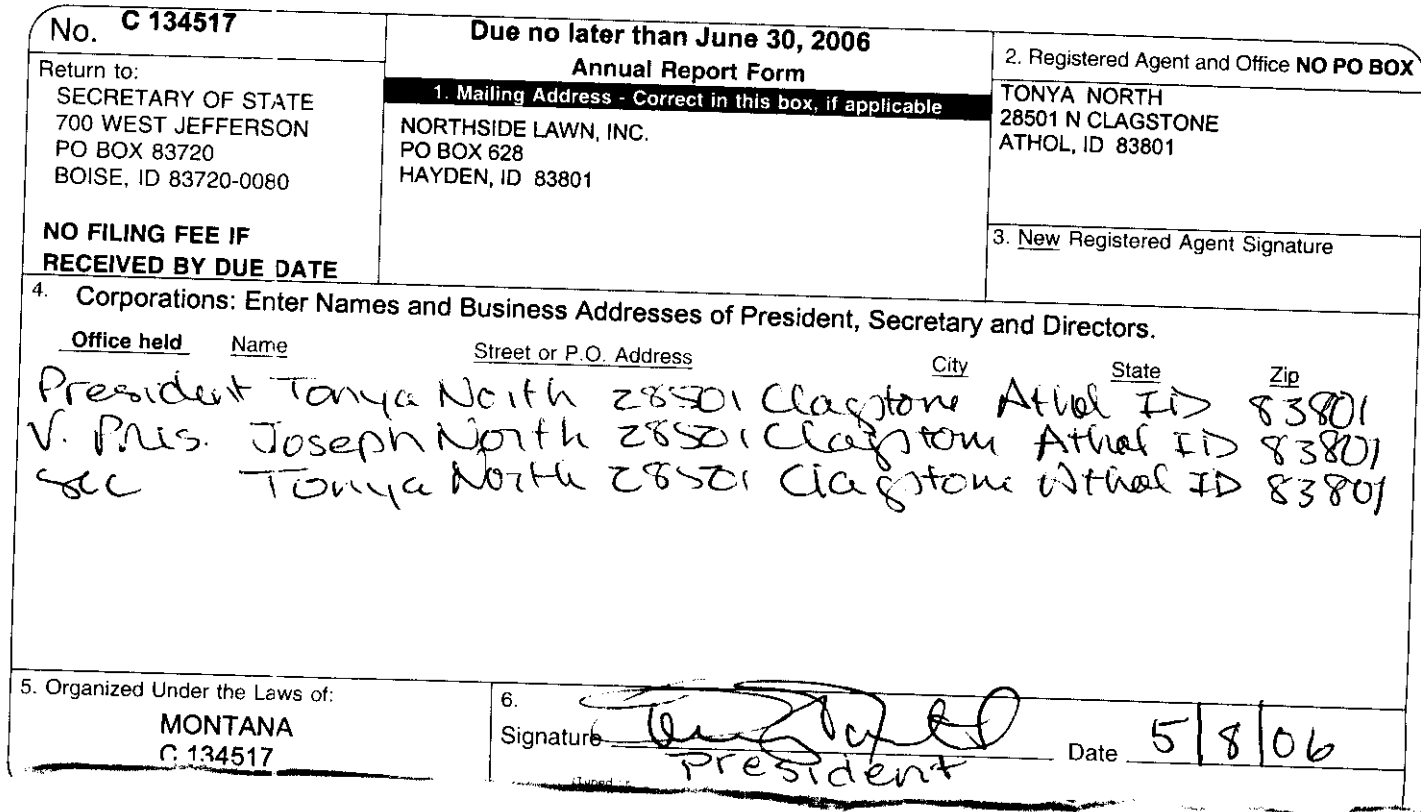 No. C 134517
Return to:
SECRETARY OF STATE
700 WEST JEFFERSON
PO BOX 83720
BOISE, ID 83720-0080
NO FILING FEE IF
RECEIVED BY DUE DATE
Due no later than June 30, 2006
Annual Report Form
1. Mailing Address - Correct in this box, if applicable
NORTHSIDE LAWN, INC.
PO BOX 628
HAYDEN, ID 83801
2. Registered Agent and Office NO PO BOX
TONYA NORTH
28501 N CLAGSTONE
ATHOL, ID 83801
3. New Registered Agent Signature
4. Corporations: Enter Names and Business Addresses of President, Secretary and Directors.
Office held Name Street or P.O. Address City State Zip
President Tonya North 28501 Clagstone Athol ID 83801
V. Pres. Joseph North 28501 Clagstone Athol ID 83801
Sec Tonya North 28501 Clagstone Athol ID 83801
5. Organized Under the Laws of:
MONTANA
C 134517
6.
Signature
President
Date 5/8/06